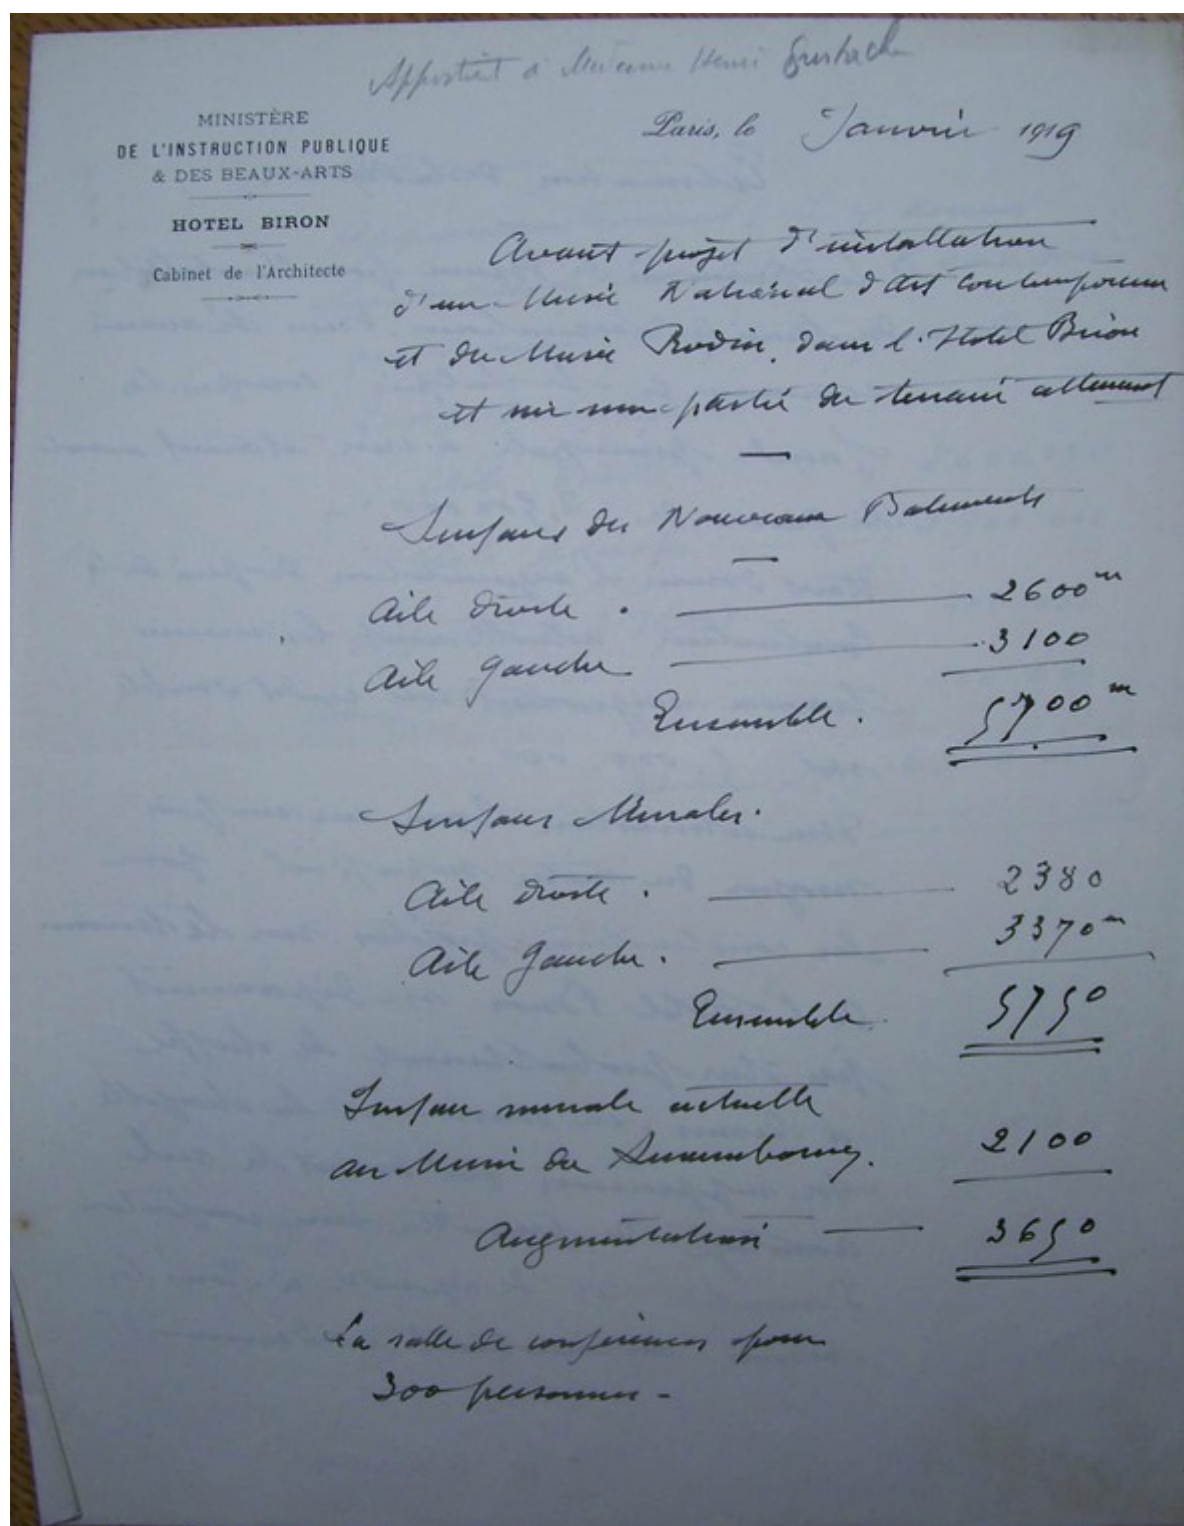 Appartient à Madame Henri
MINISTÈRE
DE L'INSTRUCTION PUBLIQUE
& DES BEAUX-ARTS
HOTEL BIRON
Cabinet de l'Architecte
Paris, le Janvier 1919
Avant-projet d'installation
d'un Musée National d'Art Contemporain
et du Musée Rodin, dans l'Hotel Biron
et sur une partie du terrain attenant
Surfaces des Nouveaux Batiments
Aile droite. 2600 m
Aile gauche 3100
Ensemble. 5700 m
Surfaces Murales.
Aile droite. 2380
Aile gauche. 3370 m
Ensemble 5750
Surface murale actuelle
au Musée du Luxembourg. 2100
Augmentation 3650
La salle de conférences pour
300 personnes -